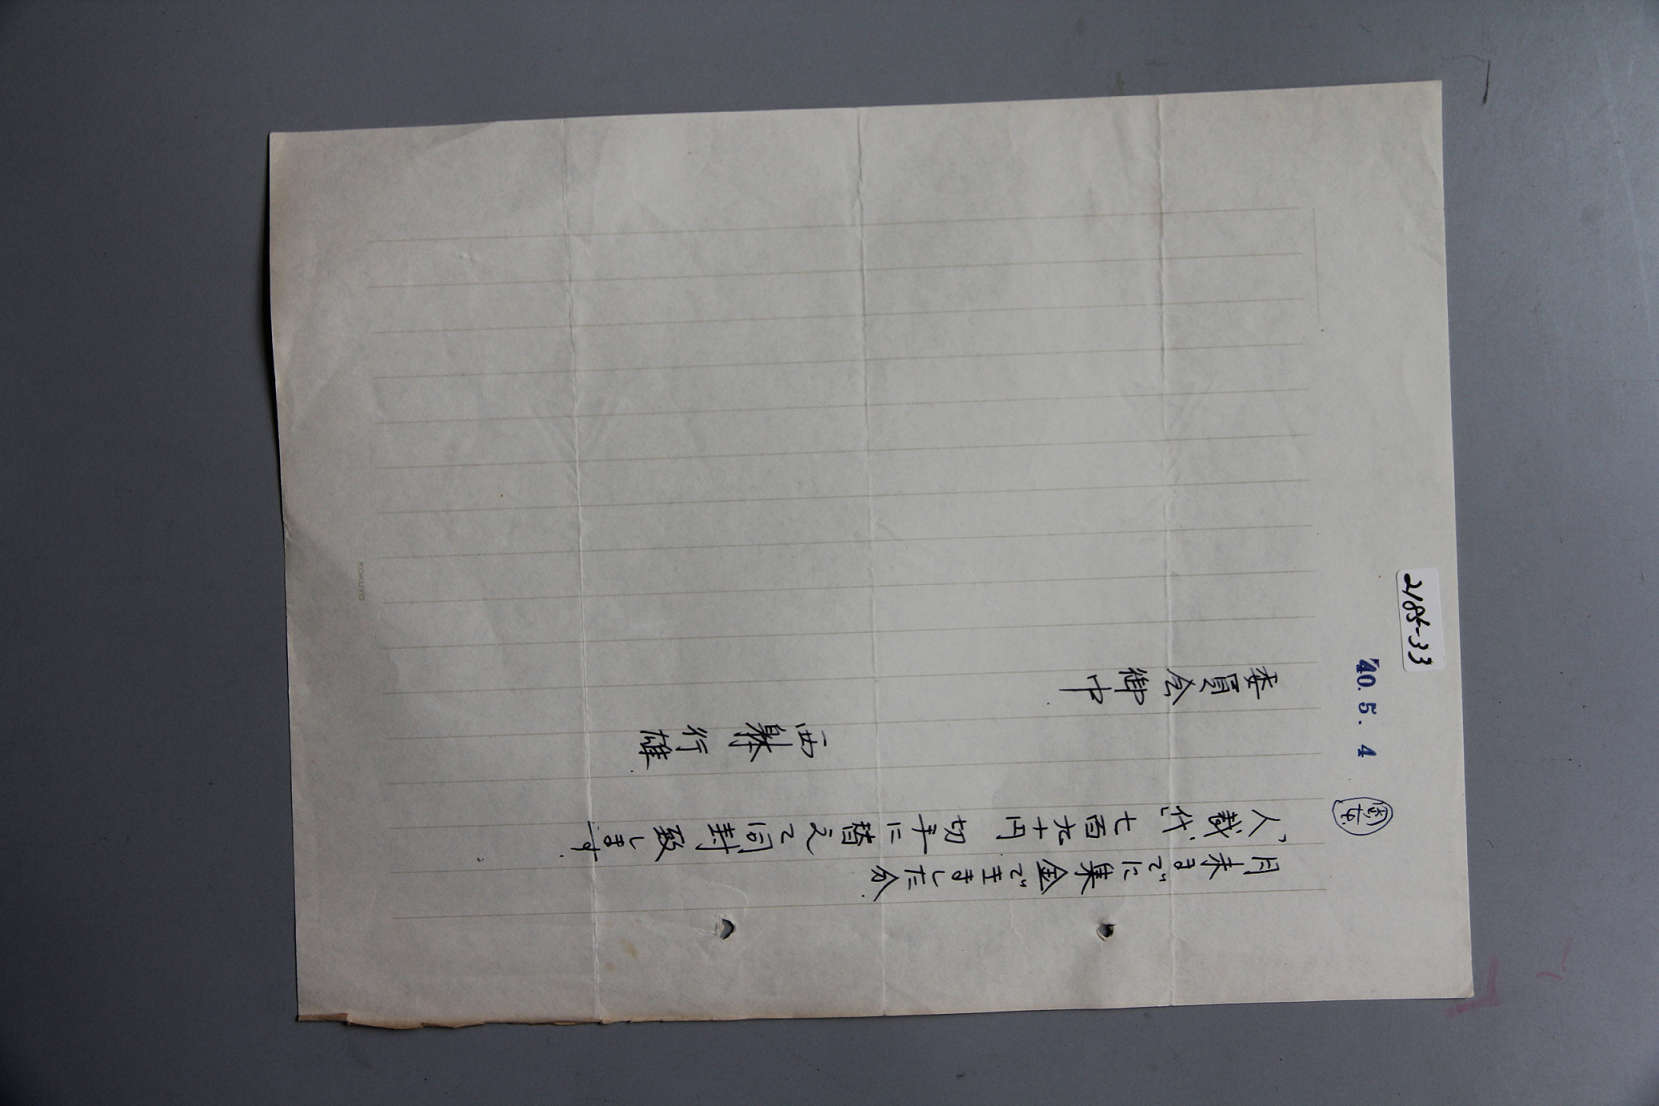 2185-33
'40. 5. 4
月末までに集金できました分
「人裁」代 七百九十円 切手に替えて同封致します.
西 行雄
委員会御中